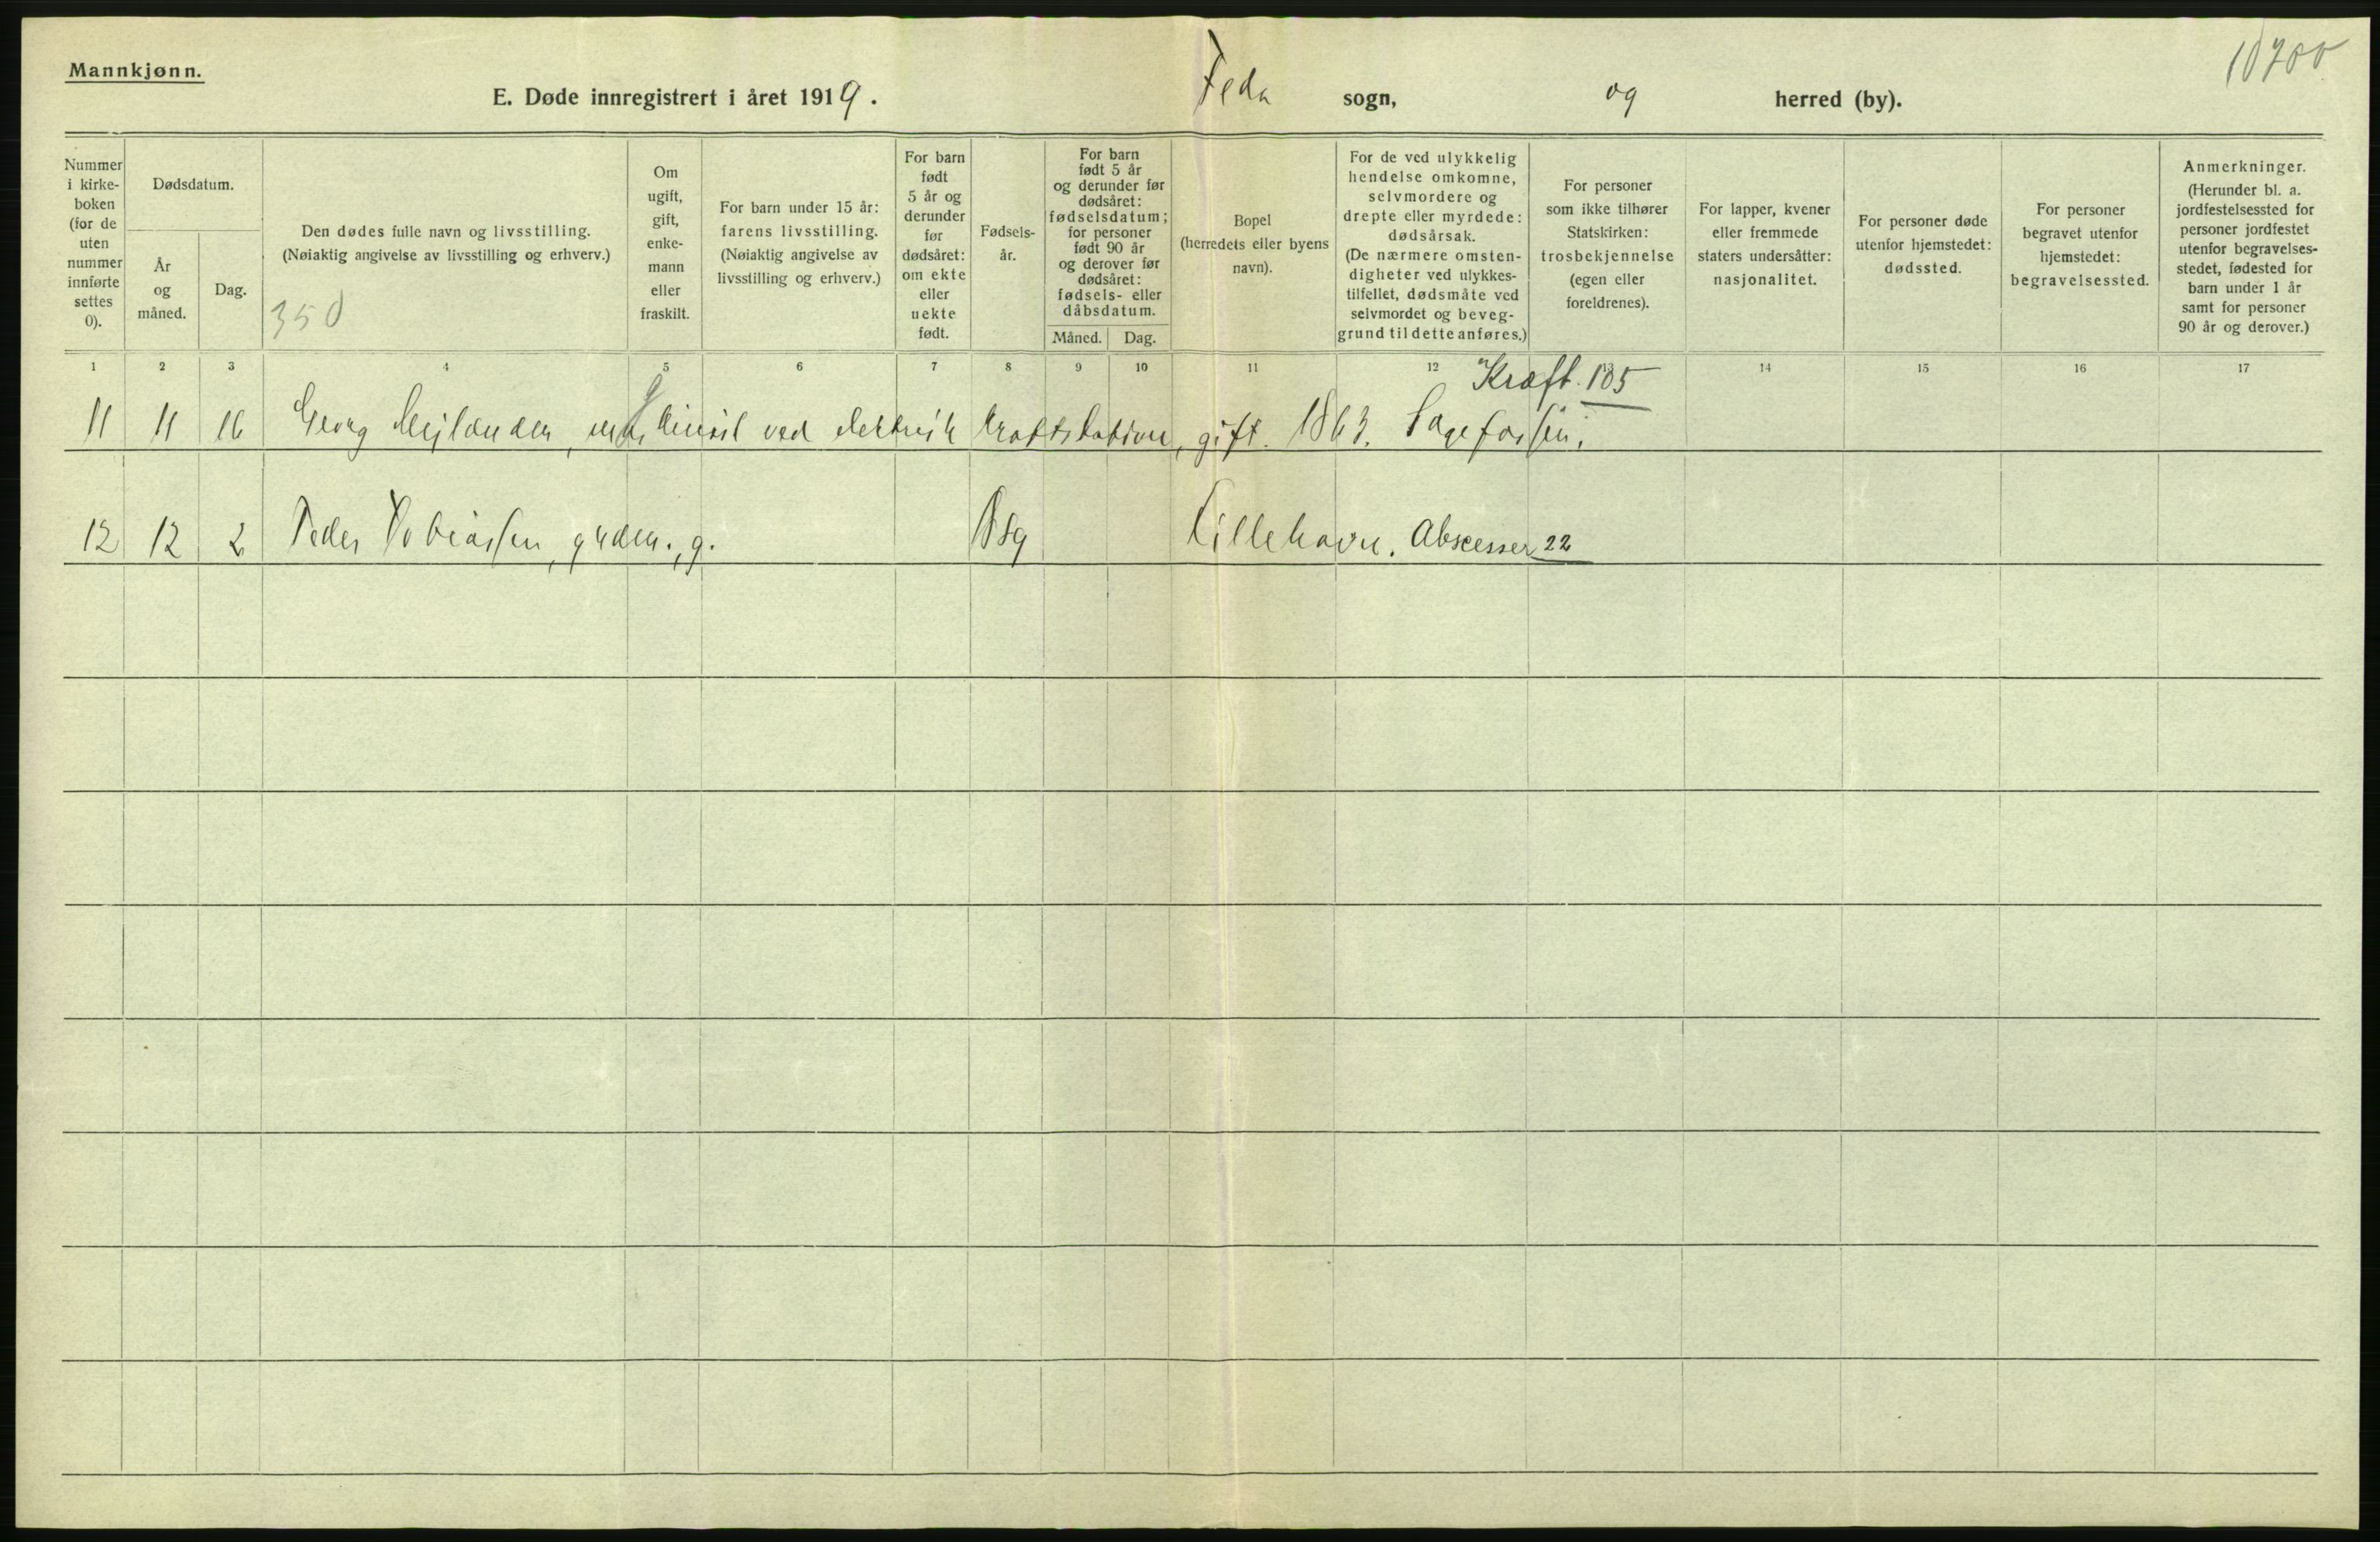 Mannkjønn.
10700
E. Døde innregistrert i året 1919. Feda sogn, og herred (by).
Nummer i kirke-boken (for de uten nummer innførte settes 0).
Dødsdatum.
År og måned.
Dag.
Den dødes fulle navn og livsstilling.
(Nøiaktig angivelse av livsstilling og erhverv.)
350
Om ugift, gift, enke-mann eller fraskilt.
For barn under 15 år: farens livsstilling.
(Nøiaktig angivelse av livsstilling og erhverv.)
For barn født 5 år og derunder før dødsåret: om ekte eller uekte født.
Fødsels-år.
For barn født 5 år og derunder før dødsåret: fødselsdatum; for personer født 90 år og derover før dødsåret: fødsels- eller dåbsdatum.
Måned. Dag.
Bopel (herredets eller byens navn).
For de ved ulykkelig hendelse omkomne, selvmordere og drepte eller myrdede: dødsårsak.
(De nærmere omsten-digheter ved ulykkes-tilfellet, dødsmåte ved selvmordet og beveg-grund til dette anføres.)
For personer som ikke tilhører Statskirken: trosbekjennelse (egen eller foreldrenes).
For lapper, kvener eller fremmede staters undersåtter: nasjonalitet.
For personer døde utenfor hjemstedet: dødssted.
For personer begravet utenfor hjemstedet: begravelsessted.
Anmerkninger.
(Herunder bl. a. jordfestelsessted for personer jordfestet utenfor begravelses-stedet, fødested for barn under 1 år samt for personer 90 år og derover.)
1 2 3 4 5 6 7 8 9 10 11 12 14 15 16 17
Kræft. 105
11 11 16 Georg ved elektrisk kraftstation, gift. 1863.
12 12 2 Peder Tobiassen, g. Lillehavn. Abscesser 22